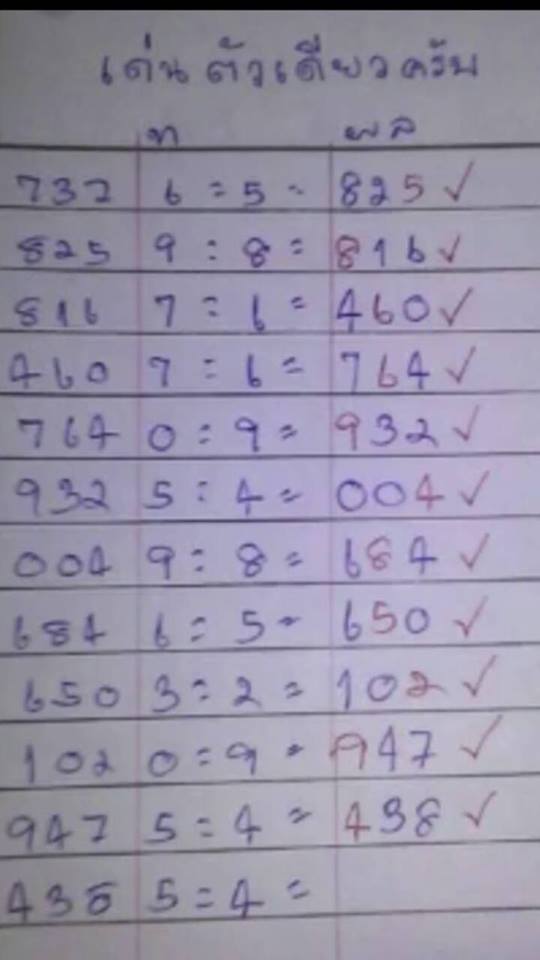 เด่นตัวเดียวครับ
ท ผล
737 6 = 5 - 825 ✓
825 9 : 8 = 816 ✓
816 7 = 6 = 460 ✓
460 7 = 6 = 764 ✓
764 0 = 9 = 932 ✓
932 5 = 4 = 004 ✓
004 9 = 8 = 684 ✓
684 6 = 5 - 650 ✓
650 3 = 2 = 102 ✓
102 0 = 9 - 947 ✓
947 5 = 4 = 438 ✓
438 5 = 4 =